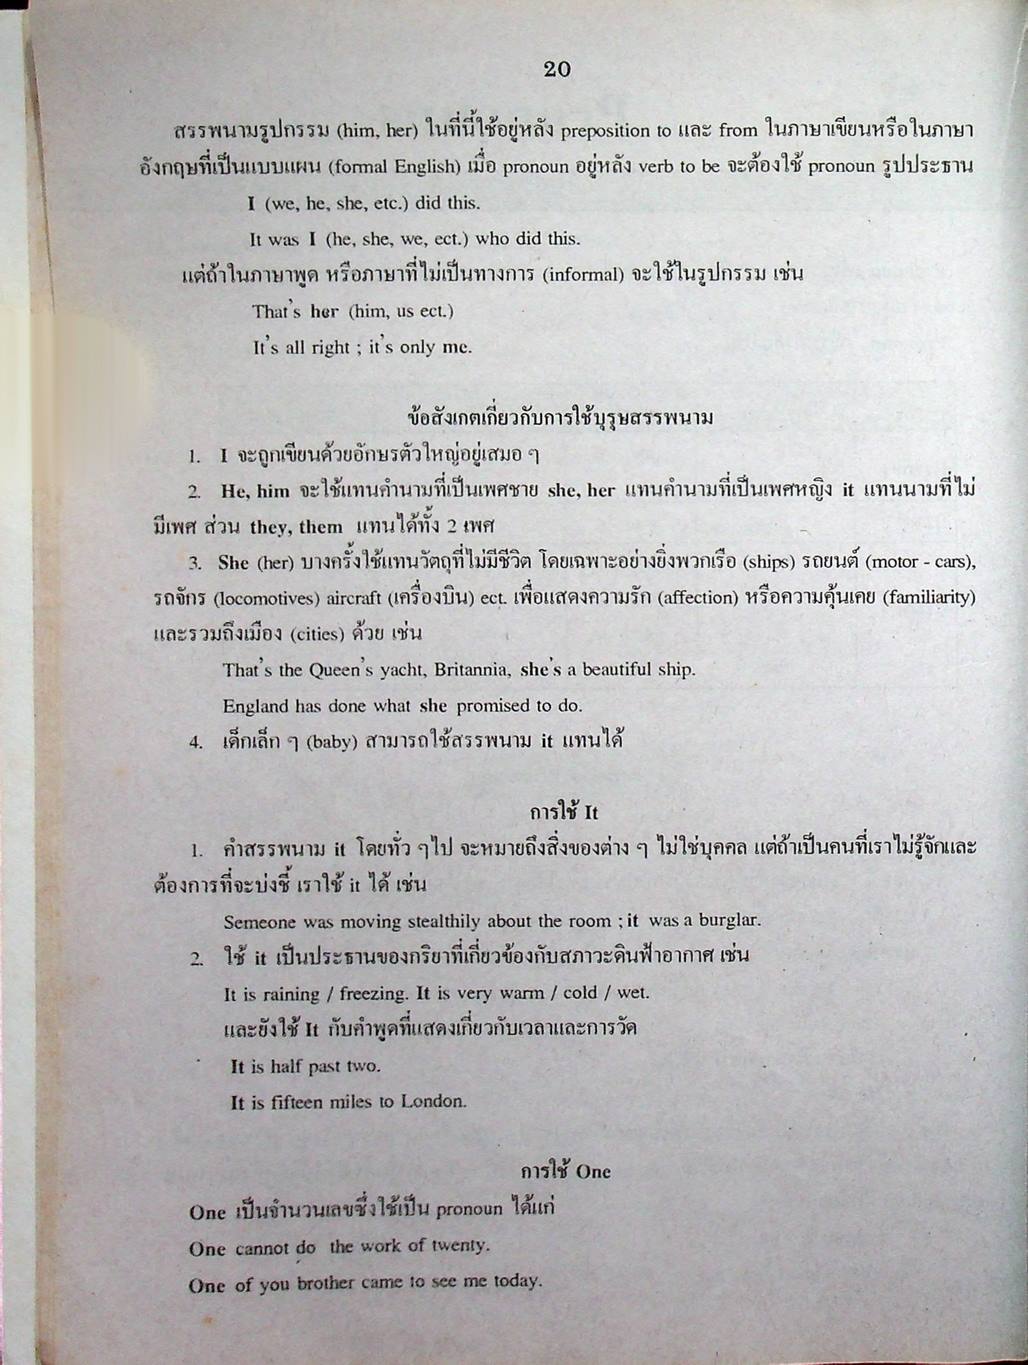 20
สรรพนามรูปกรรม (him, her) ในที่นี้ใช้อยู่หลัง preposition to และ from ในภาษาเขียนหรือในภาษา
อังกฤษที่เป็นแบบแผน (formal English) เมื่อ pronoun อยู่หลัง verb to be จะต้องใช้ pronoun รูปประธาน
I (we, he, she, etc.) did this.
It was I (he, she, we, ect.) who did this.
แต่ถ้าในภาษาพูด หรือภาษาที่ไม่เป็นทางการ (informal) จะใช้ในรูปกรรม เช่น
That's her (him, us ect.)
It's all right ; it's only me.
ข้อสังเกตเกี่ยวกับการใช้บุรุษสรรพนาม
1. I จะถูกเขียนด้วยอักษรตัวใหญ่อยู่เสมอ ๆ
2. He, him จะใช้แทนคำนามที่เป็นเพศชาย she, her แทนคำนามที่เป็นเพศหญิง it แทนนามที่ไม่
มีเพศ ส่วน they, them แทนได้ทั้ง 2 เพศ
3. She (her) บางครั้งใช้แทนวัตถุที่ไม่มีชีวิต โดยเฉพาะอย่างยิ่งพวกเรือ (ships) รถยนต์ (motor - cars),
รถจักร (locomotives) aircraft (เครื่องบิน) ect. เพื่อแสดงความรัก (affection) หรือความคุ้นเคย (familiarity)
และรวมถึงเมือง (cities) ด้วย เช่น
That's the Queen's yacht, Britannia, she's a beautiful ship.
England has done what she promised to do.
4. เด็กเล็ก ๆ (baby) สามารถใช้สรรพนาม it แทนได้
การใช้ It
1. คำสรรพนาม it โดยทั่ว ๆไป จะหมายถึงสิ่งของต่าง ๆ ไม่ใช่บุคคล แต่ถ้าเป็นคนที่เราไม่รู้จักและ
ต้องการที่จะบ่งชี้ เราใช้ it ได้ เช่น
Semeone was moving stealthily about the room ; it was a burglar.
2. ใช้ it เป็นประธานของกริยาที่เกี่ยวข้องกับสภาวะดินฟ้าอากาศ เช่น
It is raining / freezing. It is very warm / cold / wet.
และยังใช้ It กับคำพูดที่แสดงเกี่ยวกับเวลาและการวัด
It is half past two.
It is fifteen miles to London.
การใช้ One
One เป็นจำนวนเลขซึ่งใช้เป็น pronoun ได้แก่
One cannot do the work of twenty.
One of you brother came to see me today.